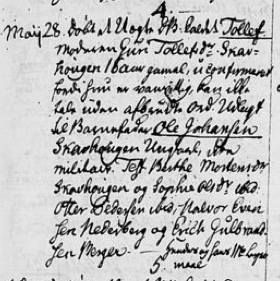 4.
Maij 28. döbt et Uægte Db: kaldt Tollef
moderen Guri Tollefsdr Skar-
hougen 16 aar gamal, uconfirmeret
fordi hun er vanvittig, kan ikke
tale uden afbrudte Ord Udlagt
til Barnefader Ole Johansen
Skarhougen Ungkarl, ikke
militair. Test Berthe Mortensdr
Skarhougen og Sophie Olsdr ibid:
Otter Pedersen ibid: Halvor Even
sen Nederberg og Erich Gulbrand
sen Berger.
5. maal